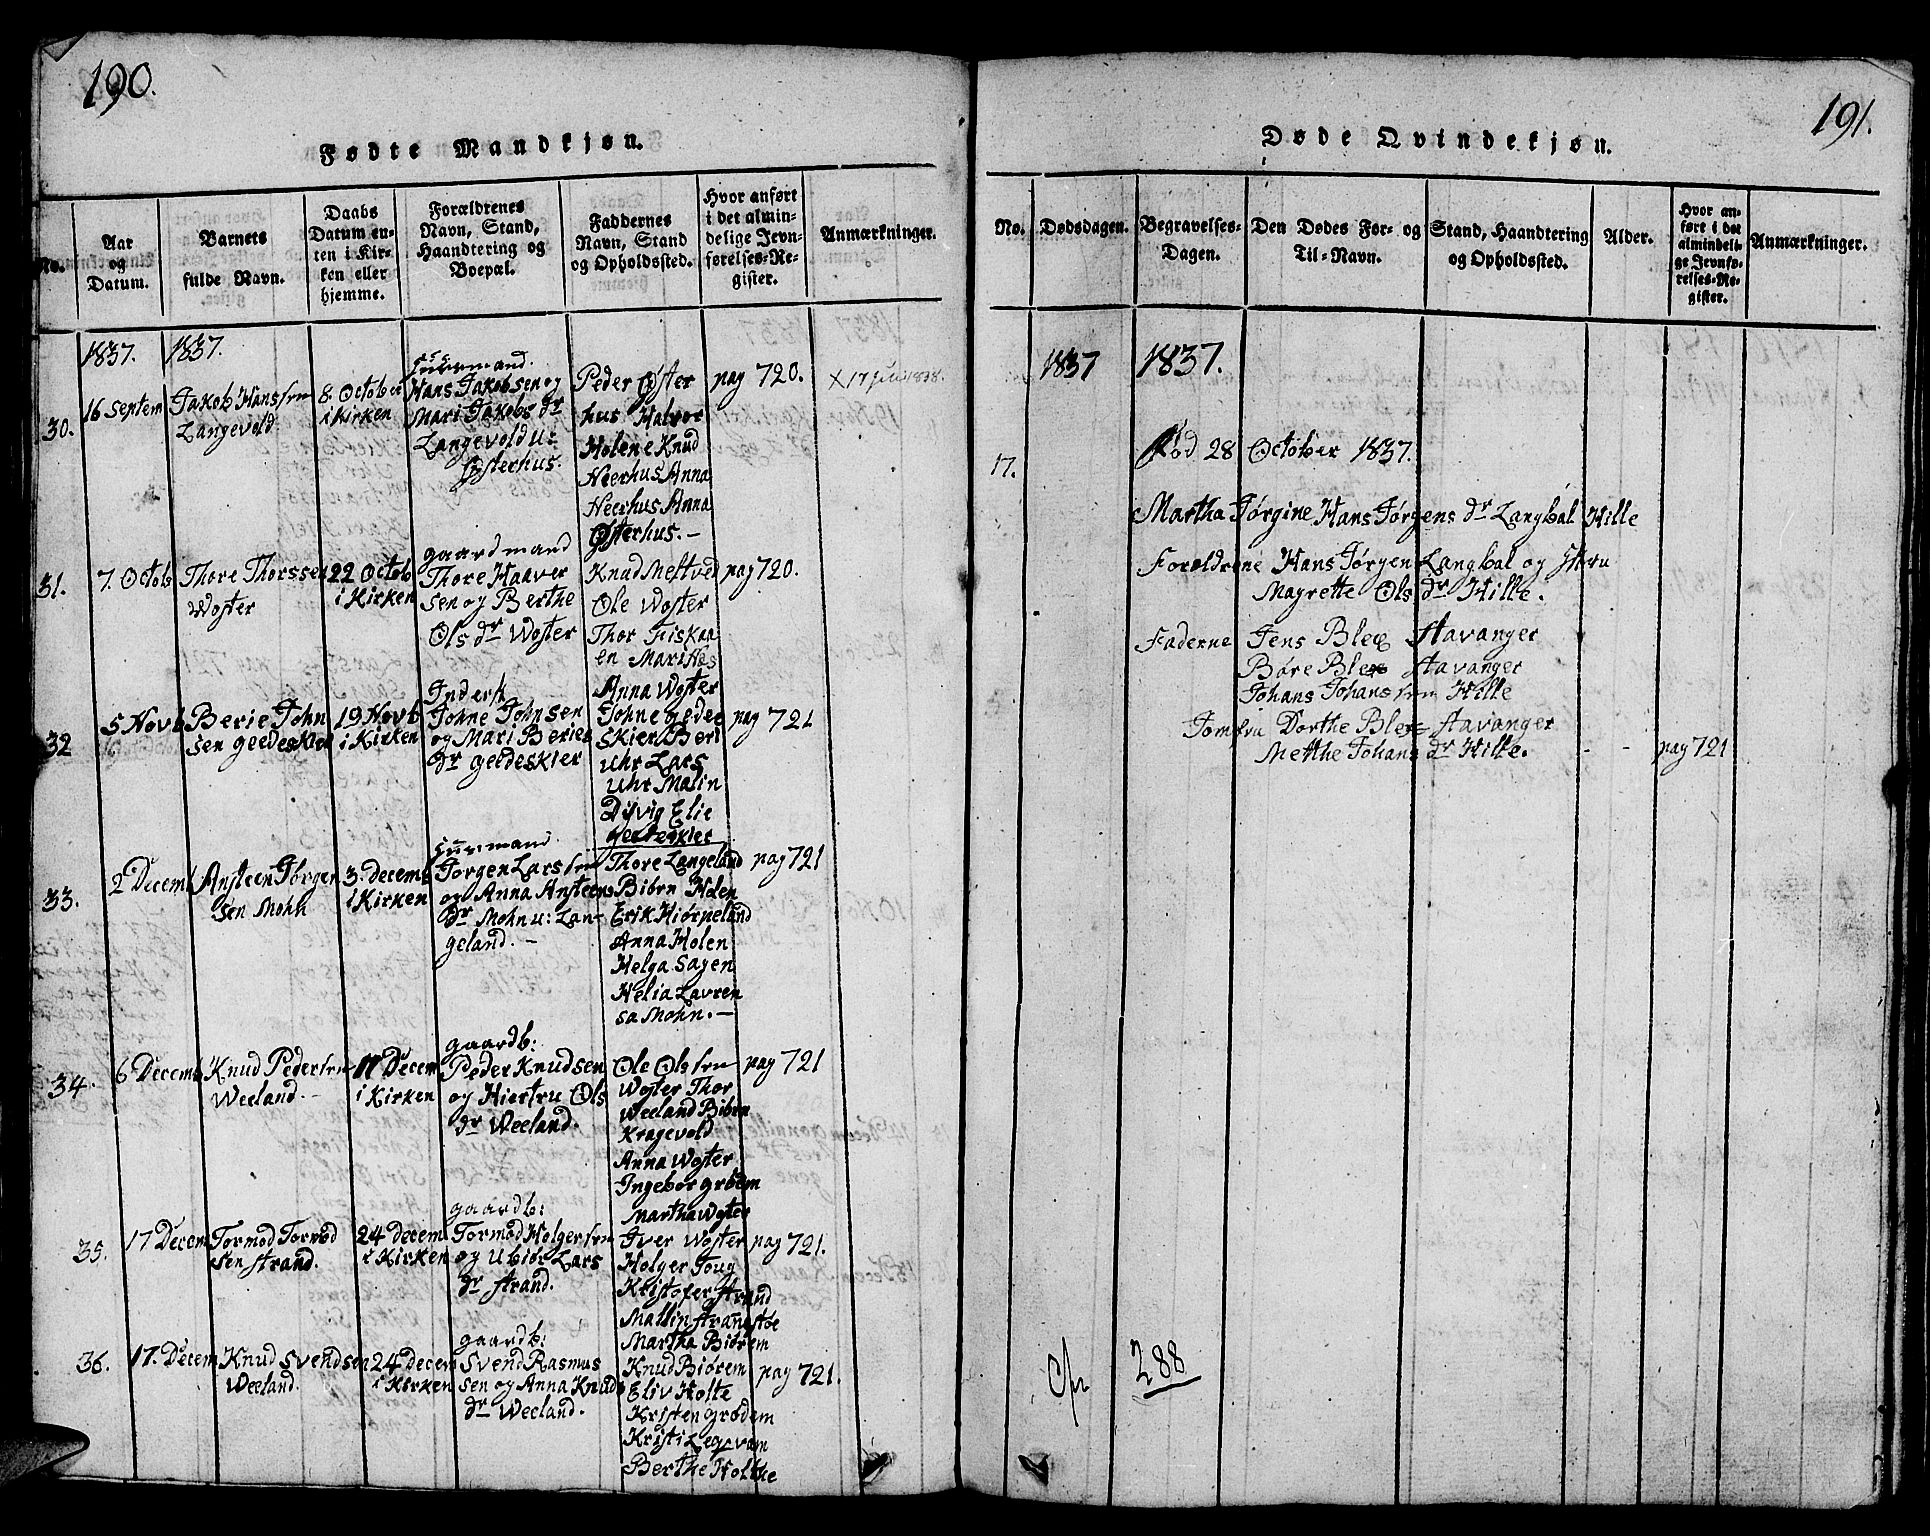 190.
Fødte Mandkjøn.
No.
Aar
og
Datum.
Barnets
fulde Navn.
Daabs
Datum en-
ten i Kir-
ken eller
hjemme.
Forældrenes
Navn, Stand,
Haandtering og
Boepæl.
Faddernes
Navn, Stand
og Opholdssted.
Hvor anført
i det almin-
delige Jevn-
førelses-Re-
gister.
Anmærkninger.
1837.
1837.
30.
16 Septem
Jakob Hanssen
Langevold
8 October
i Kirken
Huusmand.
Hans Jakobsen og
Mari Jakobs dr
Langevold u:
Østerhus.
Peder Øster
hus Halvor
Holene Knud
Neerhus Anna
Neerhus Anna
Østerhus.-
pag 720.
X 17 Juli 1838.
31.
7. Octob
Thore Thorssen
Woster
22 Octob
i Kirken
gaardmand
Thore Haaver
sen og Berthe
Ols dr Woster
Knud Meltved
Ole Woster
Thor Fiskaa
en Mari Nes
Anna Woster
pag 720.
32
5 Novb
Berie John
sen geedeskier
19 Novb
i Kirken
Inderst
Johne Johnsen
og Mari Beries
dr geedeskier
Johne gedee
skier Beri
uhr Lars
uhr Malin
Dysvig Elie
gedeskier
pag 721
33.
2 Decemb
Ansteen Jørgen
sen Mohn
3. Decemb
i Kirken
Huusmand
Jørgen Larssen
og Anna Ansteens
dr Mohn u: Lan-
geland. -
Thore Langeland
Biørn Holen
Erik Hiørneland
Anna Holen
Helga Sagen
Helia Lavren
sa Mohn.-
pag 721
34.
6 Decemb
Knud Pedersen
Weeland.-
17 Decem
i Kirken
gaardb:
Peder Knudsen
og Hiertru Ols
dr Weeland.
Ole Olssen
Woster Thor
Weeland Biørn
Kragevold
Anna Woster
Ingebor grødem
Martha Woster
pag 721
35.
17 Decem
Tormod Tormod
sen Strand.
24 Decem
i Kirken
gaardb:
Tormod Holgersen
og Ubiør Lars
dr Strand.
Iver Woster
Holger Toug
Kristofer Strand
Mallin Strandstøe
Martha Biørem
pag 721.
36.
17. Decem
Knud Svendsen
Weeland.
24 Decem
i Kirken
gaardb:
Svend Rasmus
sen og Anna Knuds
dr Weeland.
Knud Biørem
Eliv Holte
Kristen grødem
Kristi Legevam
Berthe Holthe
pag 721.
191.
Døde Qvindekjøn.
No.
Dødsdagen.
Begravelses-
Dagen.
Den Dødes For- og
Til-Navn.
Stand, Haandtering
og Opholdssted.
Alder.
Hvor an-
ført i det
almindeli-
ge Jevnfø-
relses-Re-
gister.
Anmærkninger.
1837
1837.
17.
Fød 28 October 1837.
Martha Jørgine Hans Jørgens dr Langbal Hille
Forældrene Hans Jørgen Langbal og Hstru
Magrette Ols dr Hille.
Faderne Jens Blee Stavanger
Børe Blee Stavanger
Johans Johanssen Hille
Jomfru Dorthe Blee Stavanger
Metthe Johans dr Hille.
- -
pag 721
288